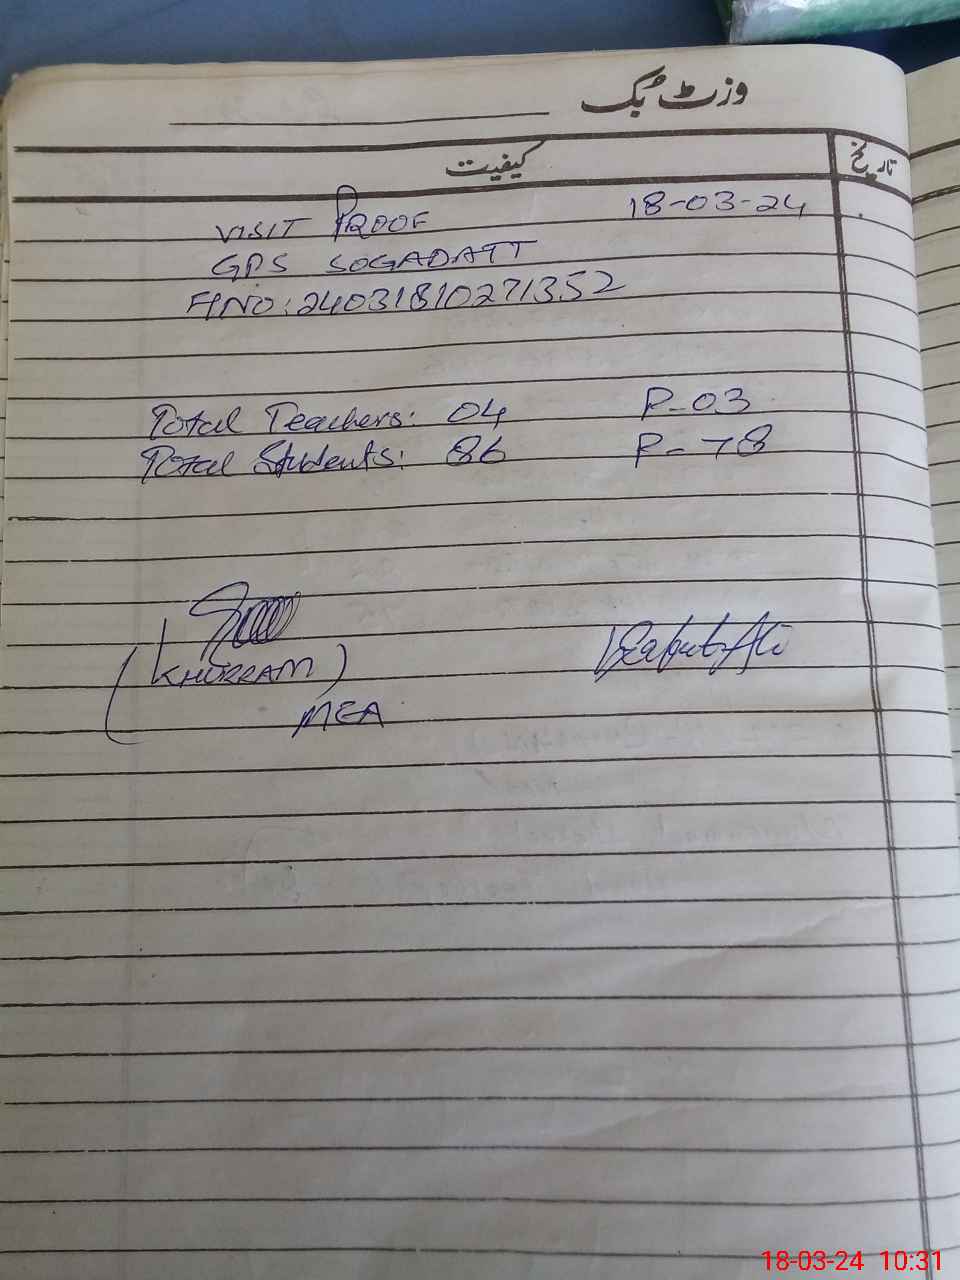 وزٹ بک
کیفیت تاریخ
VISIT PROOF 18-03-24
GPS SOGADATT
F/NO: 24031810271352
Total Teachers: 04 P-03
Total Students: 86 P-78
(KHURRAM)
MEA
18-03-24 10:31